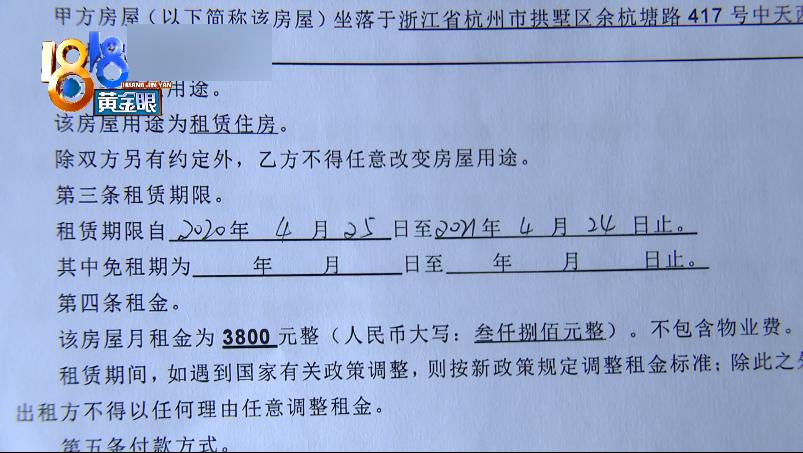 甲方房屋（以下简称该房屋）坐落于浙江省杭州市拱墅区余杭塘路 417 号中天西
1818
HUANG JIN YAN
黄金眼
用途。
该房屋用途为租赁住房。
除双方另有约定外，乙方不得任意改变房屋用途。
第三条租赁期限。
租赁期限自 2020年 4 月 25 日至2021年 4 月 24 日止。
其中免租期为 年 月 日至 年 月 日止。
第四条租金。
该房屋月租金为 3800 元整（人民币大写：叁仟捌佰元整）。不包含物业费。
租赁期间，如遇到国家有关政策调整，则按新政策规定调整租金标准；除此之外
出租方不得以任何理由任意调整租金。
第五条付款方式。